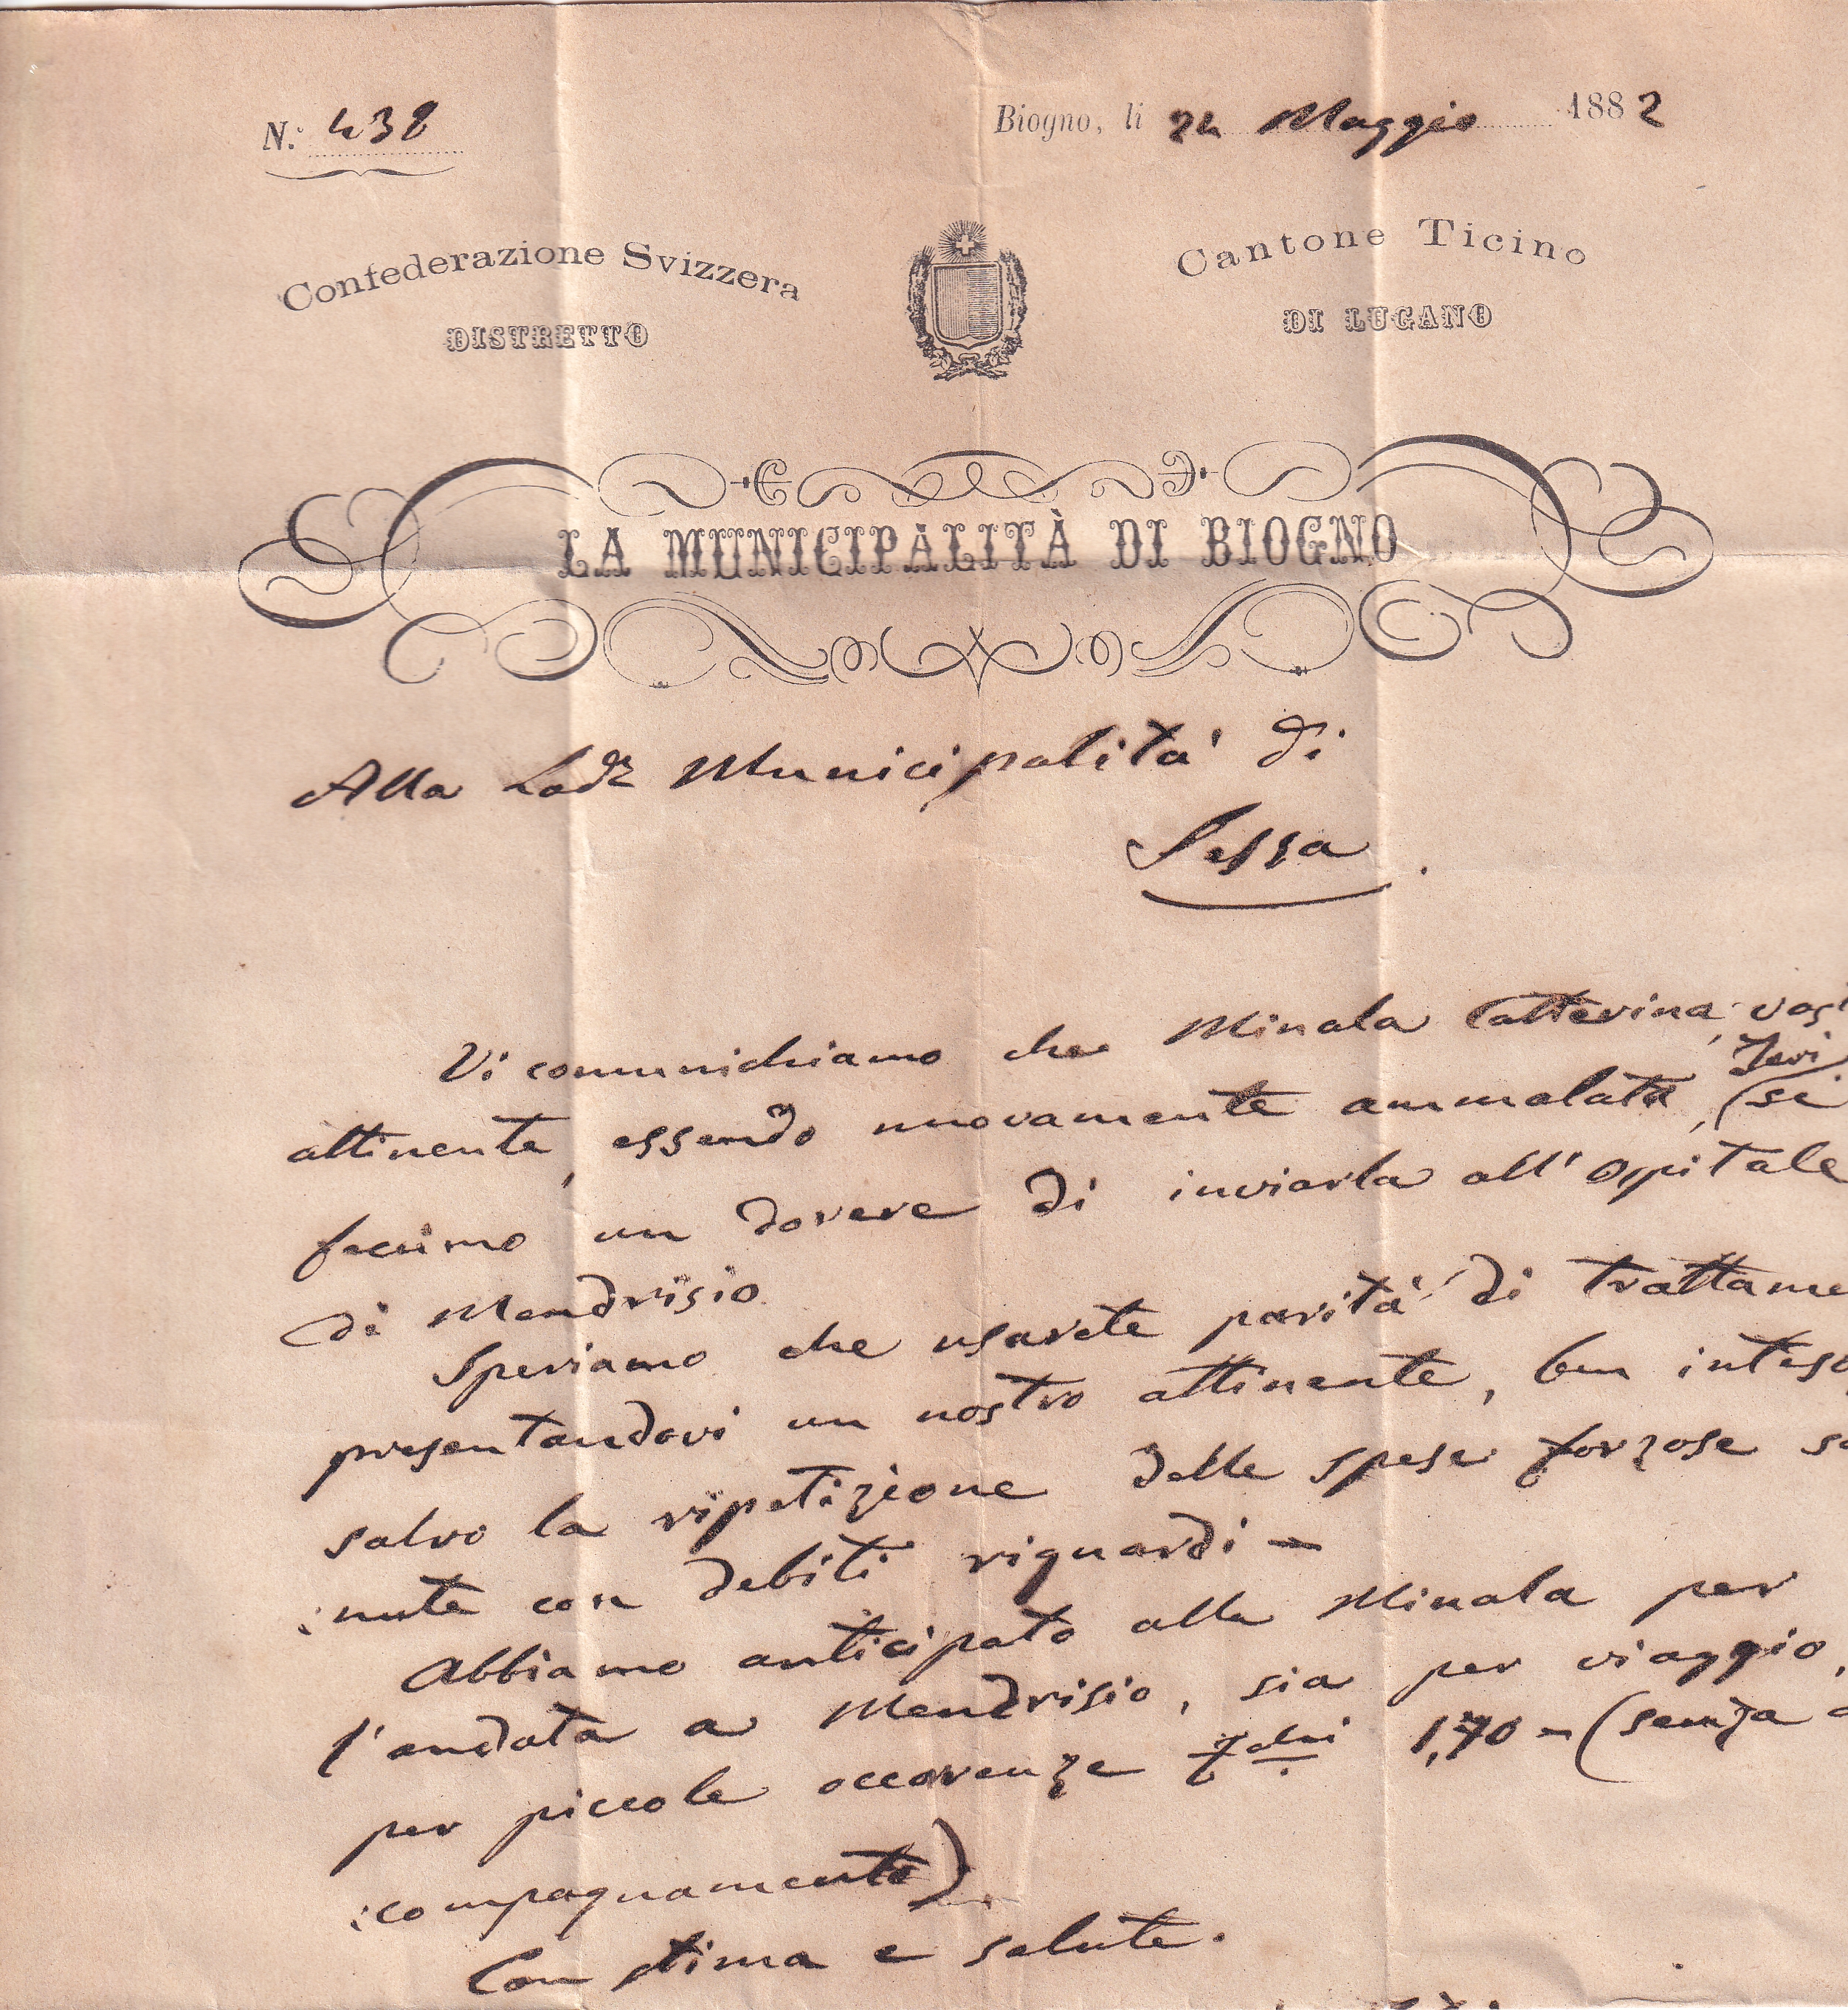 N.° 438
Biogno, li 24 Maggio 1882
Confederazione Svizzera
Cantone Ticino
DISTRETTO
DI LUGANO
LA MUNICIPALITÀ DI BIOGNO
Alla Lod.e Municipalità di
Sessa.
Vi comunichiamo che Minala Catterina, vost
attinente, essendo nuovamente ammalata, (Jeri
si
facimo un dovere di inviarla all'Ospitale
di Mendrisio.
Speriamo che usarete parità di trattame
presentandovi un nostro attinente, ben inteso
salvo la ripetizione delle spese forzose so
:nute con debiti riguardi -
Abbiamo anticipato alla Minala per
l'andata a Mendrisio, sia per viaggio,
per piccole occorenze fchi 1,70 - (senza a
:compagnamento).
Con stima e salute.